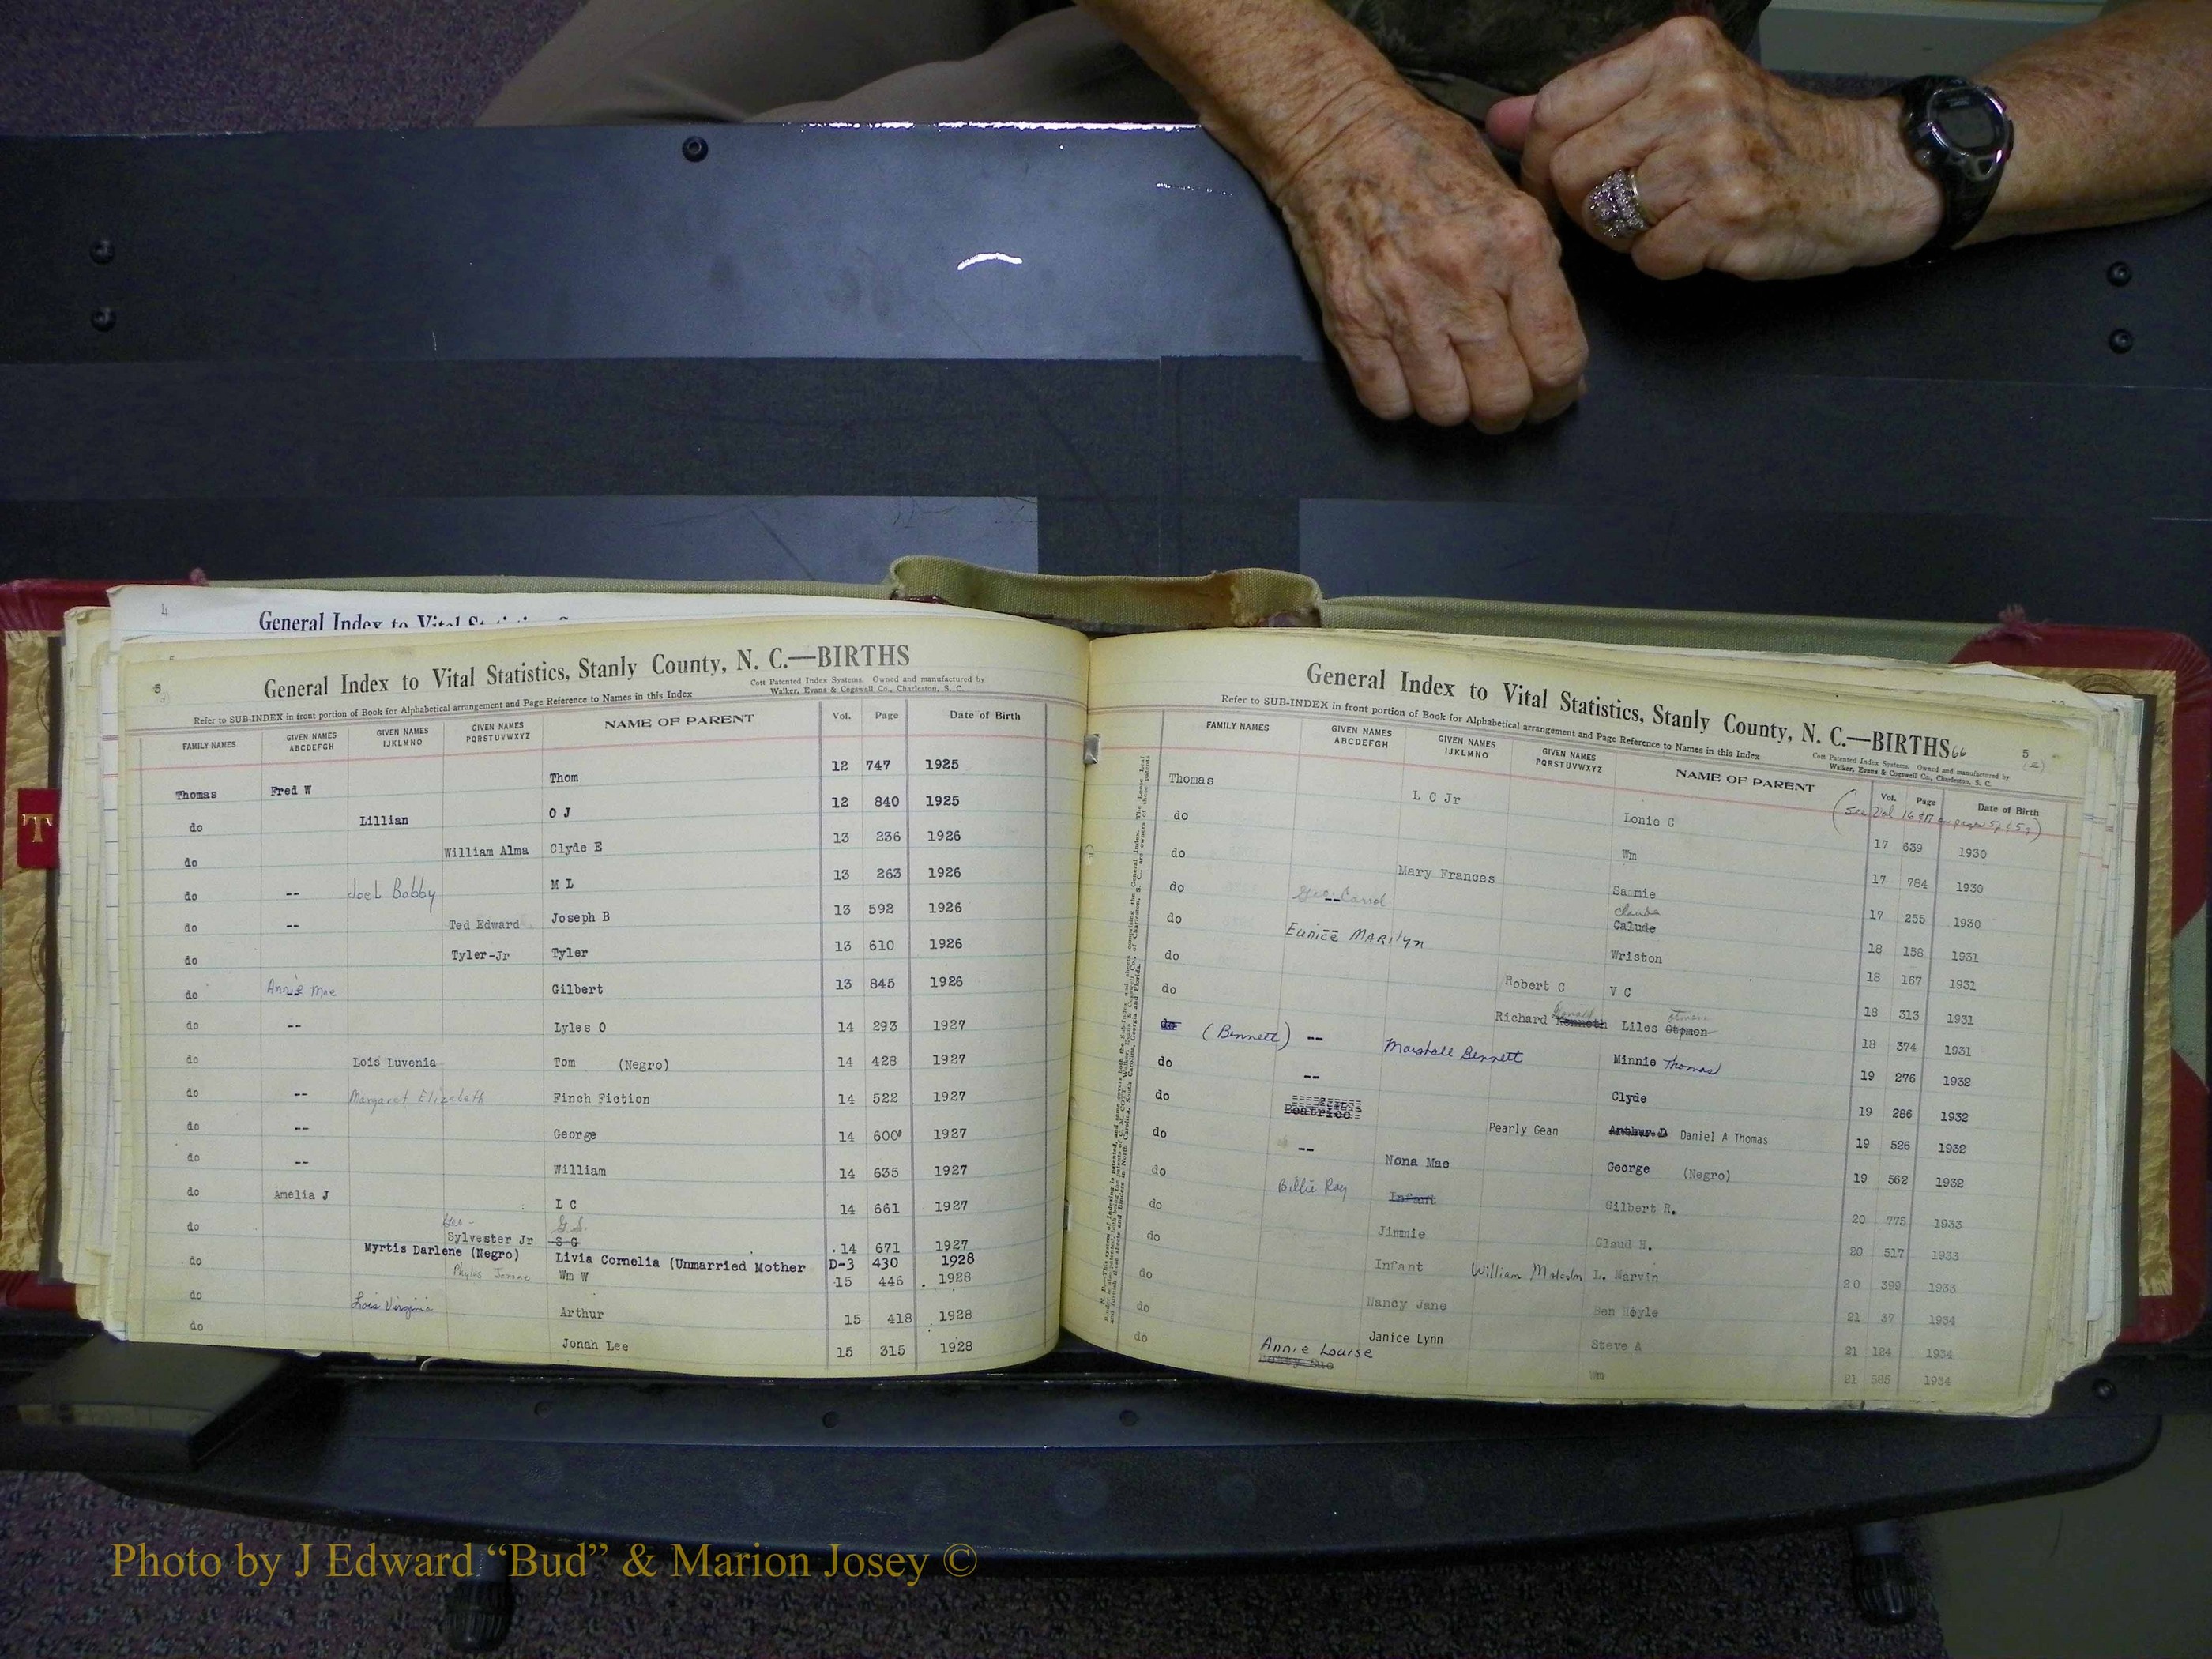 4
General Index to Vital Statistics
5
General Index to Vital Statistics, Stanly County, N. C.—BIRTHS
Cott Patented Index Systems. Owned and manufactured by
Walker, Evans & Cogswell Co., Charleston, S. C.
Refer to SUB-INDEX in front portion of Book for Alphabetical arrangement and Page Reference to Names in this Index
FAMILY NAMES GIVEN NAMES ABCDEFGH GIVEN NAMES IJKLMNO GIVEN NAMES PQRSTUVWXYZ NAME OF PARENT Vol. Page Date of Birth
Thomas Fred W Thom 12 747 1925
do Lillian O J 12 840 1925
do William Alma Clyde E 13 236 1926
do -- Joel Bobby M L 13 263 1926
do -- Ted Edward Joseph B 13 592 1926
do Tyler-Jr Tyler 13 610 1926
do Annie Mae Gilbert 13 845 1926
do -- Lyles O 14 293 1927
do Lois Luvenia Tom (Negro) 14 428 1927
do -- Margaret Elizabeth Finch Fiction 14 522 1927
do -- George 14 600 1927
do -- William 14 635 1927
do Amelia J L C 14 661 1927
do Sylvester Jr G. S. S G 14 671 1927
Myrtis Darlene (Negro) Livia Cornelia (Unmarried Mother D-3 430 1928
do Wm W 15 446 1928
do Lois Virginia Arthur 15 418 1928
do Jonah Lee 15 315 1928
T
General Index to Vital Statistics, Stanly County, N. C.—BIRTHS 66
5
(2)
Cott Patented Index Systems. Owned and manufactured by
Walker, Evans & Cogswell Co., Charleston, S. C.
Refer to SUB-INDEX in front portion of Book for Alphabetical arrangement and Page Reference to Names in this Index
FAMILY NAMES GIVEN NAMES ABCDEFGH GIVEN NAMES IJKLMNO GIVEN NAMES PQRSTUVWXYZ NAME OF PARENT Vol. Page Date of Birth
(See Vol 16 &17 on pages
Thomas L C Jr Lonie C 17 639 1930
do Wm 17 784 1930
do Mary Frances Sammie 17 255 1930
do -- Carrol Claude Calude 18 158 1931
do Eunice Marilyn Wriston 18 167 1931
do Robert C V C 18 313 1931
do Richard Kenneth Liles Otomon 18 374 1931
do (Bennett) -- Marshall Bennett Minnie Thomas 19 276 1932
do -- Clyde 19 286 1932
do Beatrice Pearly Gean Arthur D Daniel A Thomas 19 526 1932
do -- Nona Mae George (Negro) 19 562 1932
do Billie Ray Infant Gilbert R. 20 775 1933
do Jimmie Claud H. 20 517 1933
do Infant William Malcolm L. Marvin 20 399 1933
do Nancy Jane Ben Hoyle 21 37 1934
do Janice Lynn Steve A 21 124 1934
do Annie Louise Betty Sue Wm 21 585 1934
Photo by J Edward “Bud” & Marion Josey ©